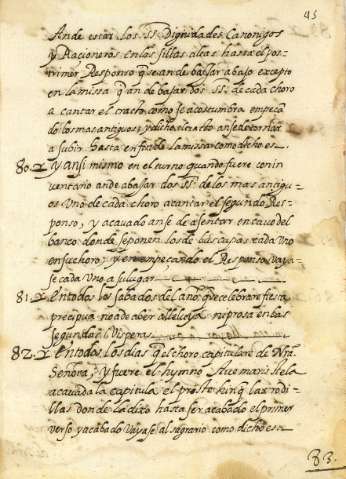 45
Ande estar los SS. Dignidades Canonigos
y Racioneros en las sillas altas hasta el pos-
trimer Responso que an de baxar abaxo excepto
en la missa q an de baxar dos SS. de cada choro
a cantar el tracto como se acostumbra empeça
do los mas antiguos y dicho el tracto anse de tornar
a subir hasta en fin de la missa como dicho es.
80. Y ansi mismo en el turno quando fuere con in
ventario ande abaxar dos SS. de los mas antigu-
os Uno de cada choro a cantar el segundo Res-
ponso, y acavado anse de asentar en cavo del
banco donde se ponen los de las capas cada Uno
en su choro, y en empeçando el Responso vaya-
se cada Uno a su lugar
81. En todos los sabados del año que celebran fiesta
precipua no a de aber alleluya ni prosa en las
Segundas Visperas
82. En todos los dias q el choro capitulare de Nra
Señora, y fuere el hymno Ave maris stela
acavada la capitula el preste hinq las rodi-
llas donde la dixo hasta ser acabado el primer
verso y acabado vayase al sagrario como dicho es
83.